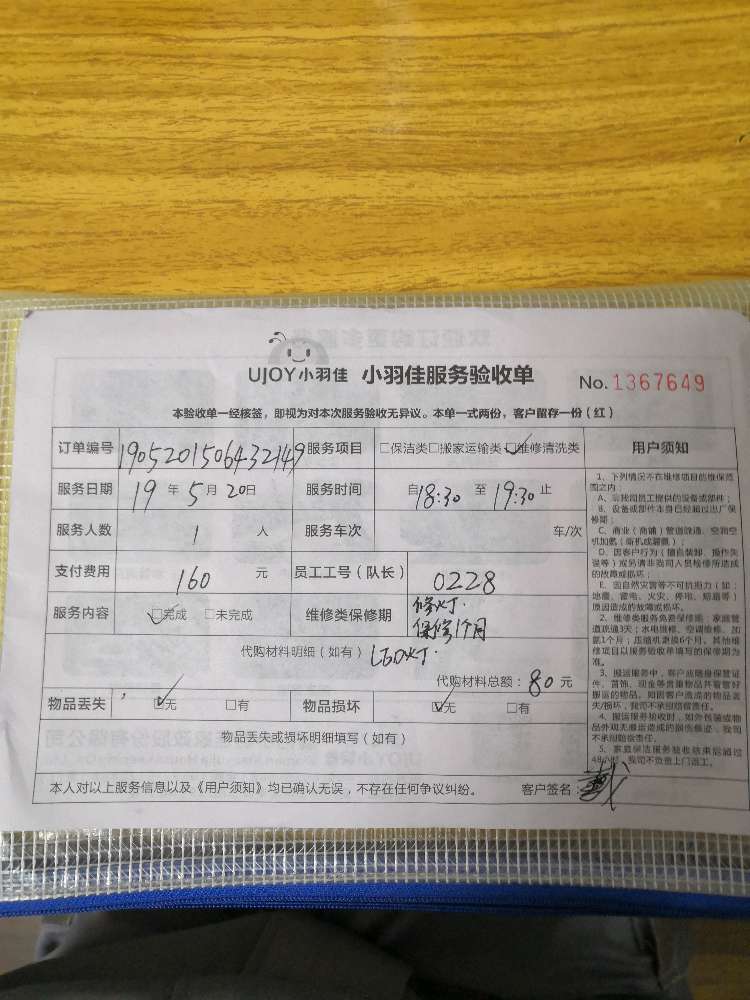 UJOY小羽佳 小羽佳服务验收单 No. 1367649
本验收单一经核签，即视为对本次服务验收无异议。本单一式两份，客户留存一份（红）
订单编号 1905201506432149 服务项目 □保洁类□搬家运输类☑维修清洗类 用户须知
服务日期 19 年 5 月 20日 服务时间 自18:30 至 19:30 止
服务人数 1 人 服务车次 车/次
支付费用 160 元 员工工号（队长） 0228
服务内容 ☑完成 □未完成 维修类保修期 修灯.
保修1个月
代购材料明细（如有） LED灯.
代购材料总额：80 元
物品丢失 ☑无 □有 物品损坏 ☑无 □有
物品丢失或损坏明细填写（如有）
本人对以上服务信息以及《用户须知》均已确认无误，不存在任何争议纠纷。 客户签名：
1、下列情况不在维修项目的维保范
围之内：
A、非我司员工提供的设备或部件；
B、设备或部件本身已经超过出厂保
修期；
C、商业（商铺）管道疏通、空调空
机加氟（新机或漏氟）；
D、因客户行为（擅自装卸、操作失
误等）或另请非我司人员检修所造成
的故障或损坏；
E、因自然灾害等不可抗拒力（如：
地震、雷电、火灾、停电、短路等）
原因造成的故障或损坏。
2、维修类服务免费保修期：家庭管
道疏通3天；水电维修、空调维修、加
氟1个月；压缩机更换6个月；其他维
修项目以服务验收单填写的保修期为
准。
3、搬运服务中，客户应随身保管证
件、首饰、现金等贵重物品并看管好
搬运的物品。如因客户造成的物品丢
失/损坏，我司不承担赔偿责任。
4、搬运服务验收时，如外包装或物
品外观无搬运造成的损伤痕迹，我司
不承担赔偿责任。
5、家庭保洁服务验收结束后超过
48小时，我司不负责上门返工。